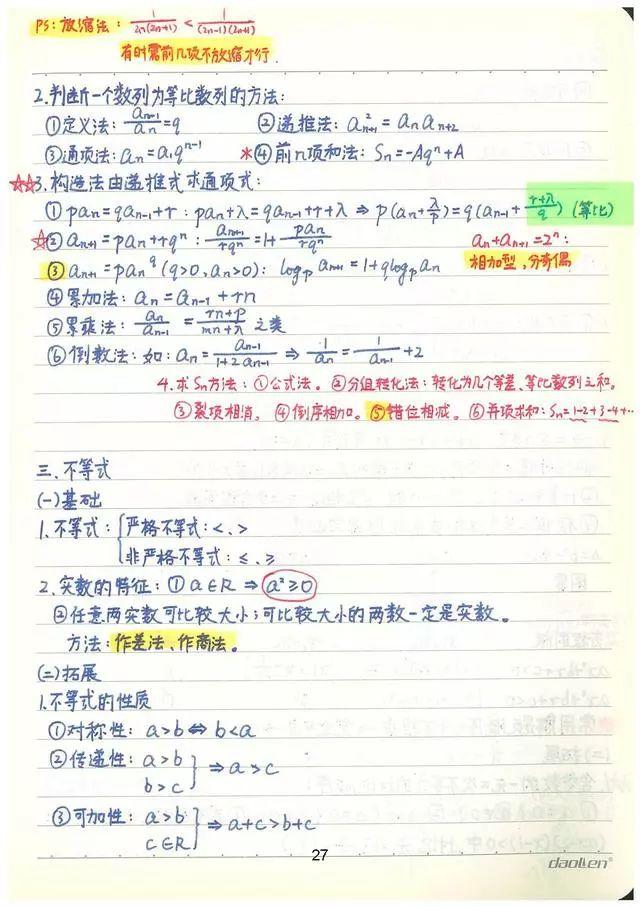 PS: 放缩法: 1/(2n(2n+1)) < 1/((2n-1)(2n+1))
有时需前几项不放缩才行.
2.判断一个数列为等比数列的方法:
①定义法: aₙ₊₁/aₙ=q ②递推法: aₙ₊₁²=aₙaₙ₊₂
③通项法: aₙ=a₁qⁿ⁻¹ *④前n项和法: Sₙ=-Aqⁿ+A
☆☆3.构造法由递推式求通项式:
①paₙ=qaₙ₋₁+r: paₙ+λ=qaₙ₋₁+r+λ ⇒ p(aₙ+λ/p)=q(aₙ₋₁+(r+λ)/q) (等比)
☆②aₙ₊₁=paₙ+rqⁿ: aₙ₊₁/rqⁿ=1+paₙ/rqⁿ aₙ+aₙ₊₁=2ⁿ:
相加型,分奇偶
③aₙ₊₁=paₙ^q (q>0,aₙ>0): logₚaₙ₊₁=1+qlogₚaₙ
④累加法: aₙ=aₙ₋₁+rn
⑤累乘法: aₙ/aₙ₋₁=(rn+p)/(mn+λ)之类
⑥倒数法: 如: aₙ=aₙ₋₁/(1+2aₙ₋₁) ⇒ 1/aₙ=1/aₙ₋₁+2
4.求Sn方法: ①公式法。②分组转化法: 转化为几个等差、等比数列之和。
③裂项相消。④倒序相加。⑤错位相减。⑥并项求和: Sn=1-2+3-4+…
三.不等式
(一)基础
1.不等式: {严格不等式: <、>
非严格不等式: ≤、≥
2.实数的特征: ①a∈R ⇒ a²≥0
②任意两实数可比较大小;可比较大小的两数一定是实数。
方法: 作差法、作商法。
(二)拓展
1.不等式的性质
①对称性: a>b ⇔ b<a
②传递性: a>b
b>c } ⇒ a>c
③可加性: a>b
c∈R } ⇒ a+c>b+c
27
daollen®